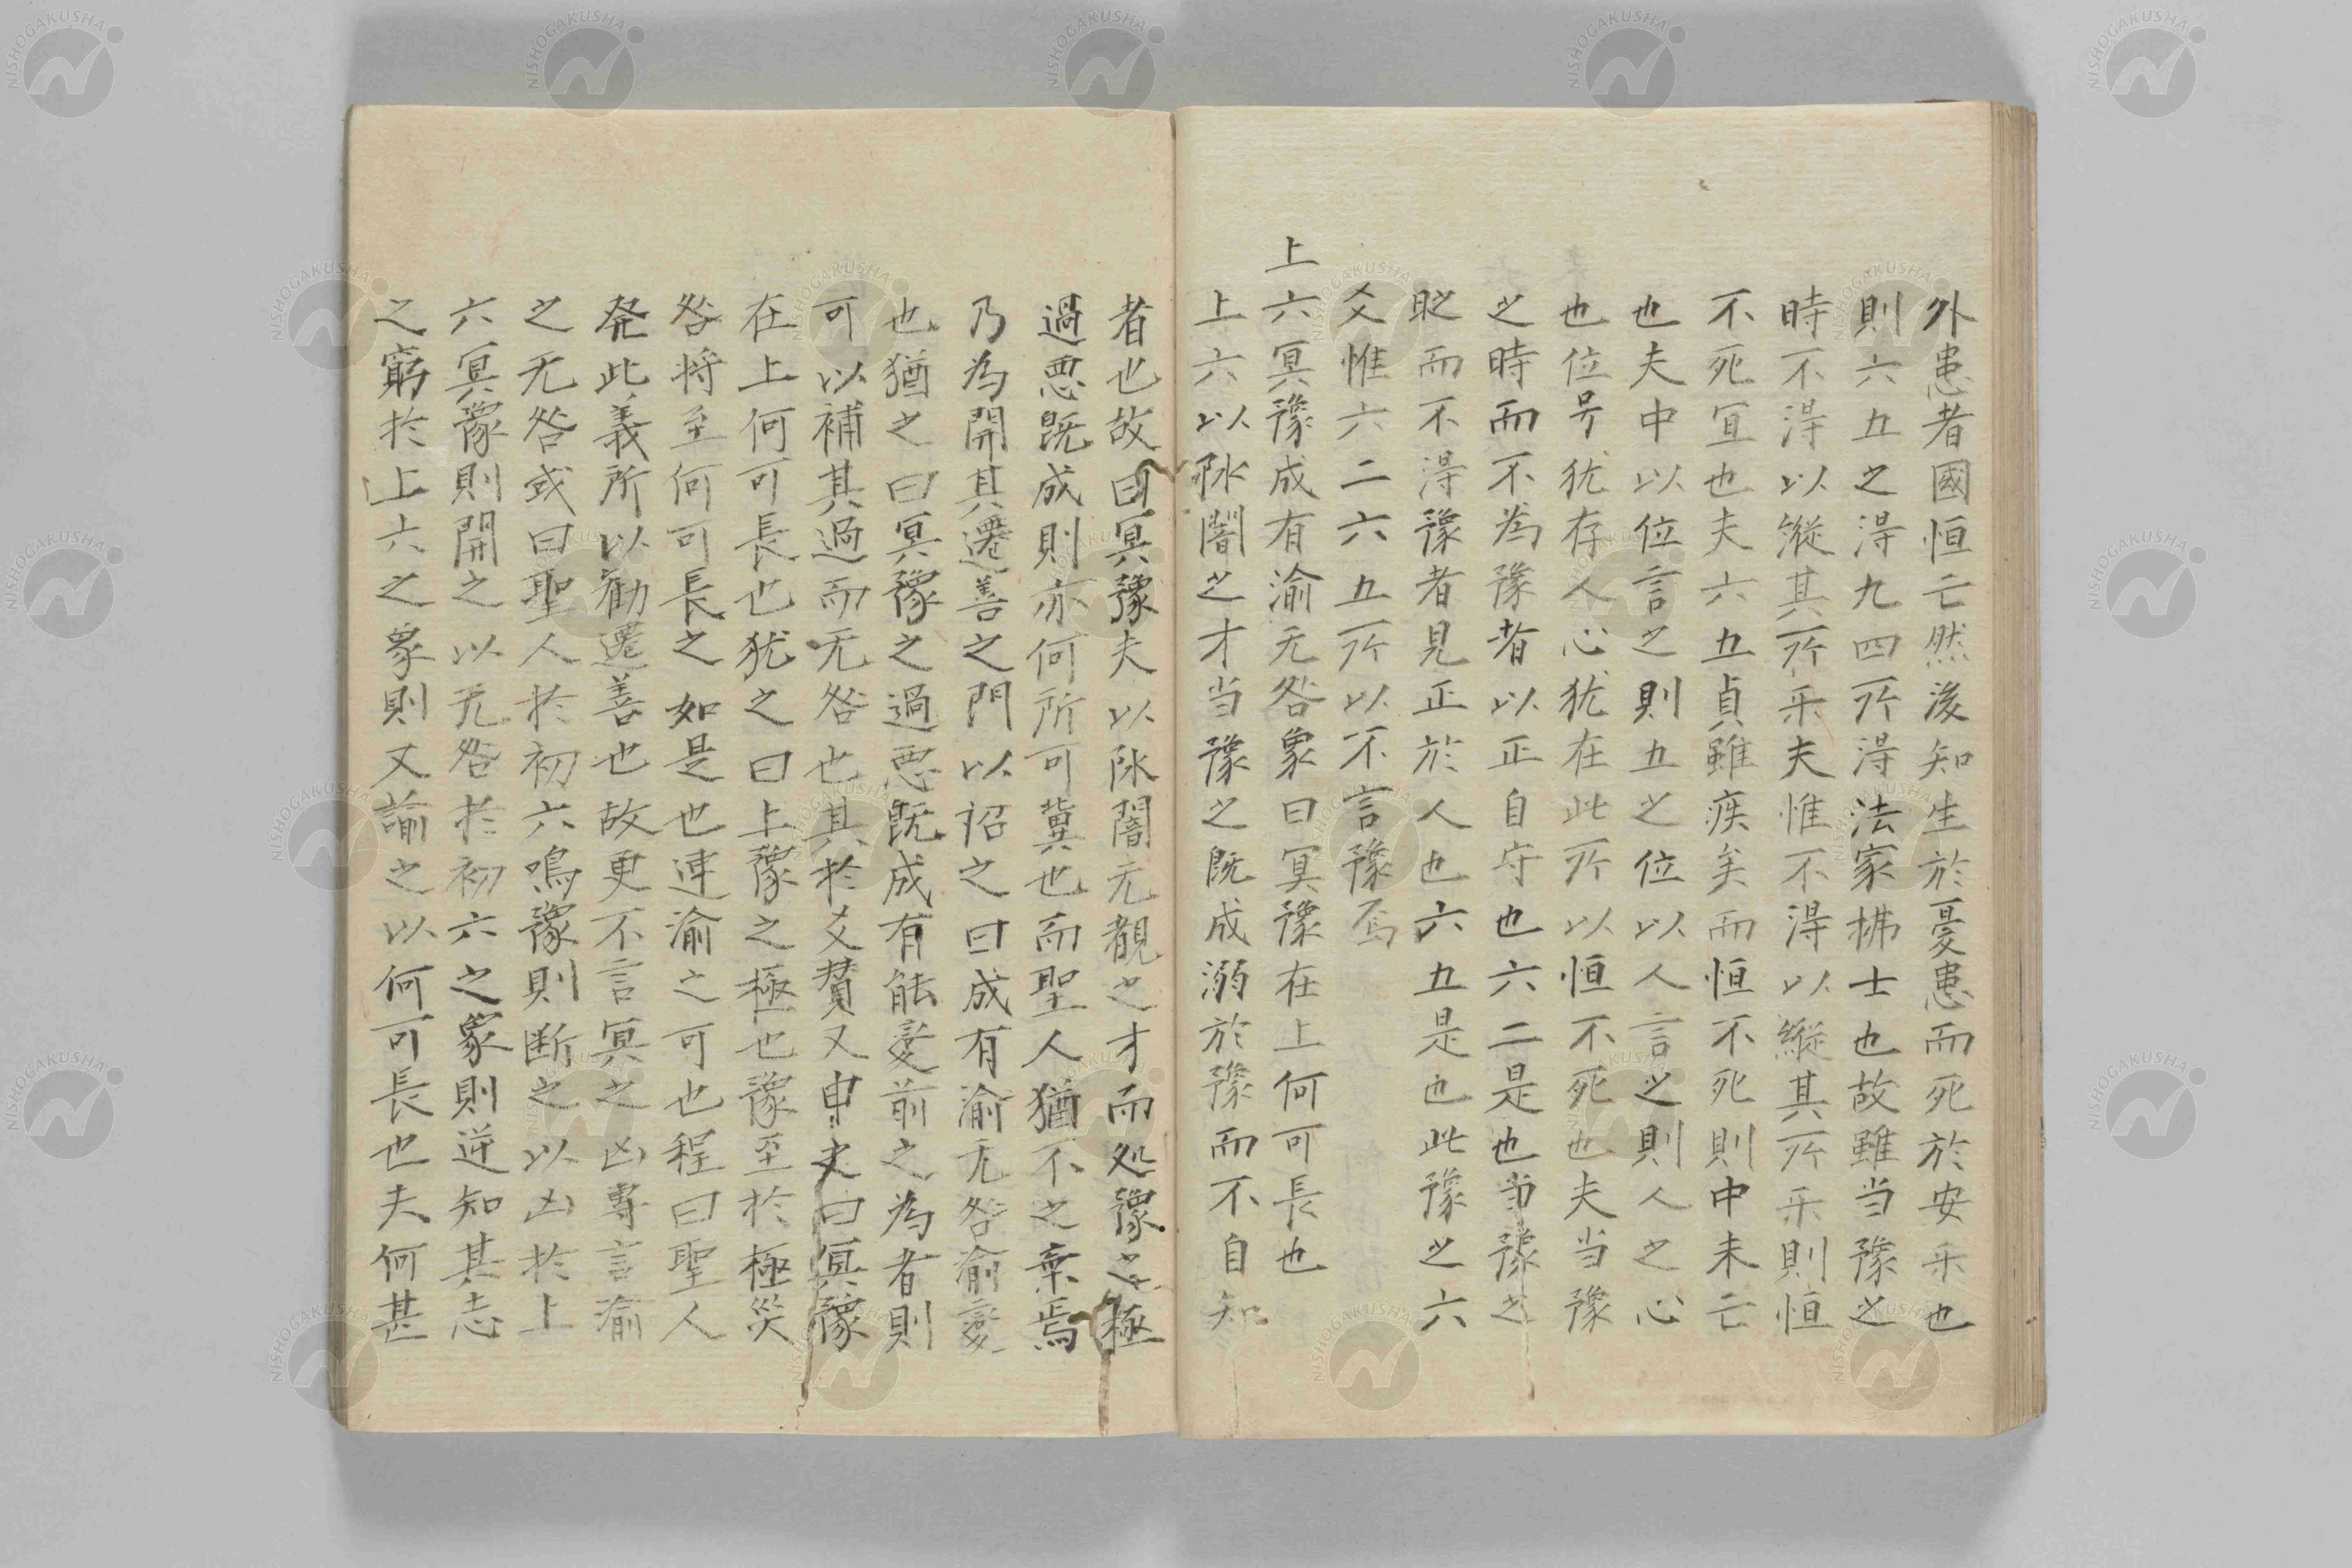 外患者國恒亡然後知生於憂患而死於安乐也
則六五之得九四所得法家拂士也故雖当豫之
時不得以縱其所乐夫惟不得以縱其所乐則恒
不死宜也夫六五貞雖疾矣而恒不死則中未亡
也夫中以位言之則五之位以人言之則人之心
也位号犹存人心犹在此所以恒不死也夫当豫
之時而不為豫者以正自守也六二是也当豫之
时而不得豫者見正於人也六五是也此豫之六
爻惟六二六五所以不言豫焉
上六冥豫成有渝无咎象曰冥豫在上何可長也
上六以陰闇之才当豫之既成溺於豫而不自知
者也故曰冥豫夫以陰闇无覩之才而処豫之極
過悪既成則亦何所可冀也而聖人猶不之棄焉
乃為開其遷善之門以詔之曰成有渝无咎渝変
也猶之曰冥豫之過悪既成有能変前之為者則
可以補其過而无咎也其於爻賛又申之曰冥豫
在上何可長也犹之曰上豫之極也豫至於極災
咎将至何可長之如是也速渝之可也程曰聖人
発此義所以勧遷善也故更不言冥之凶專言渝
之无咎或曰聖人於初六鳴豫則断之以凶於上
六冥豫則開之以无咎於初六之象則逆知其志
之窮於上六之象則又諭之以何可長也夫何甚